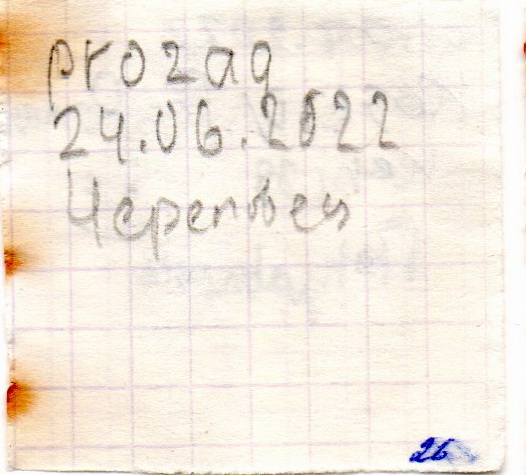 prozaq
24.06.2022
Череповец
26